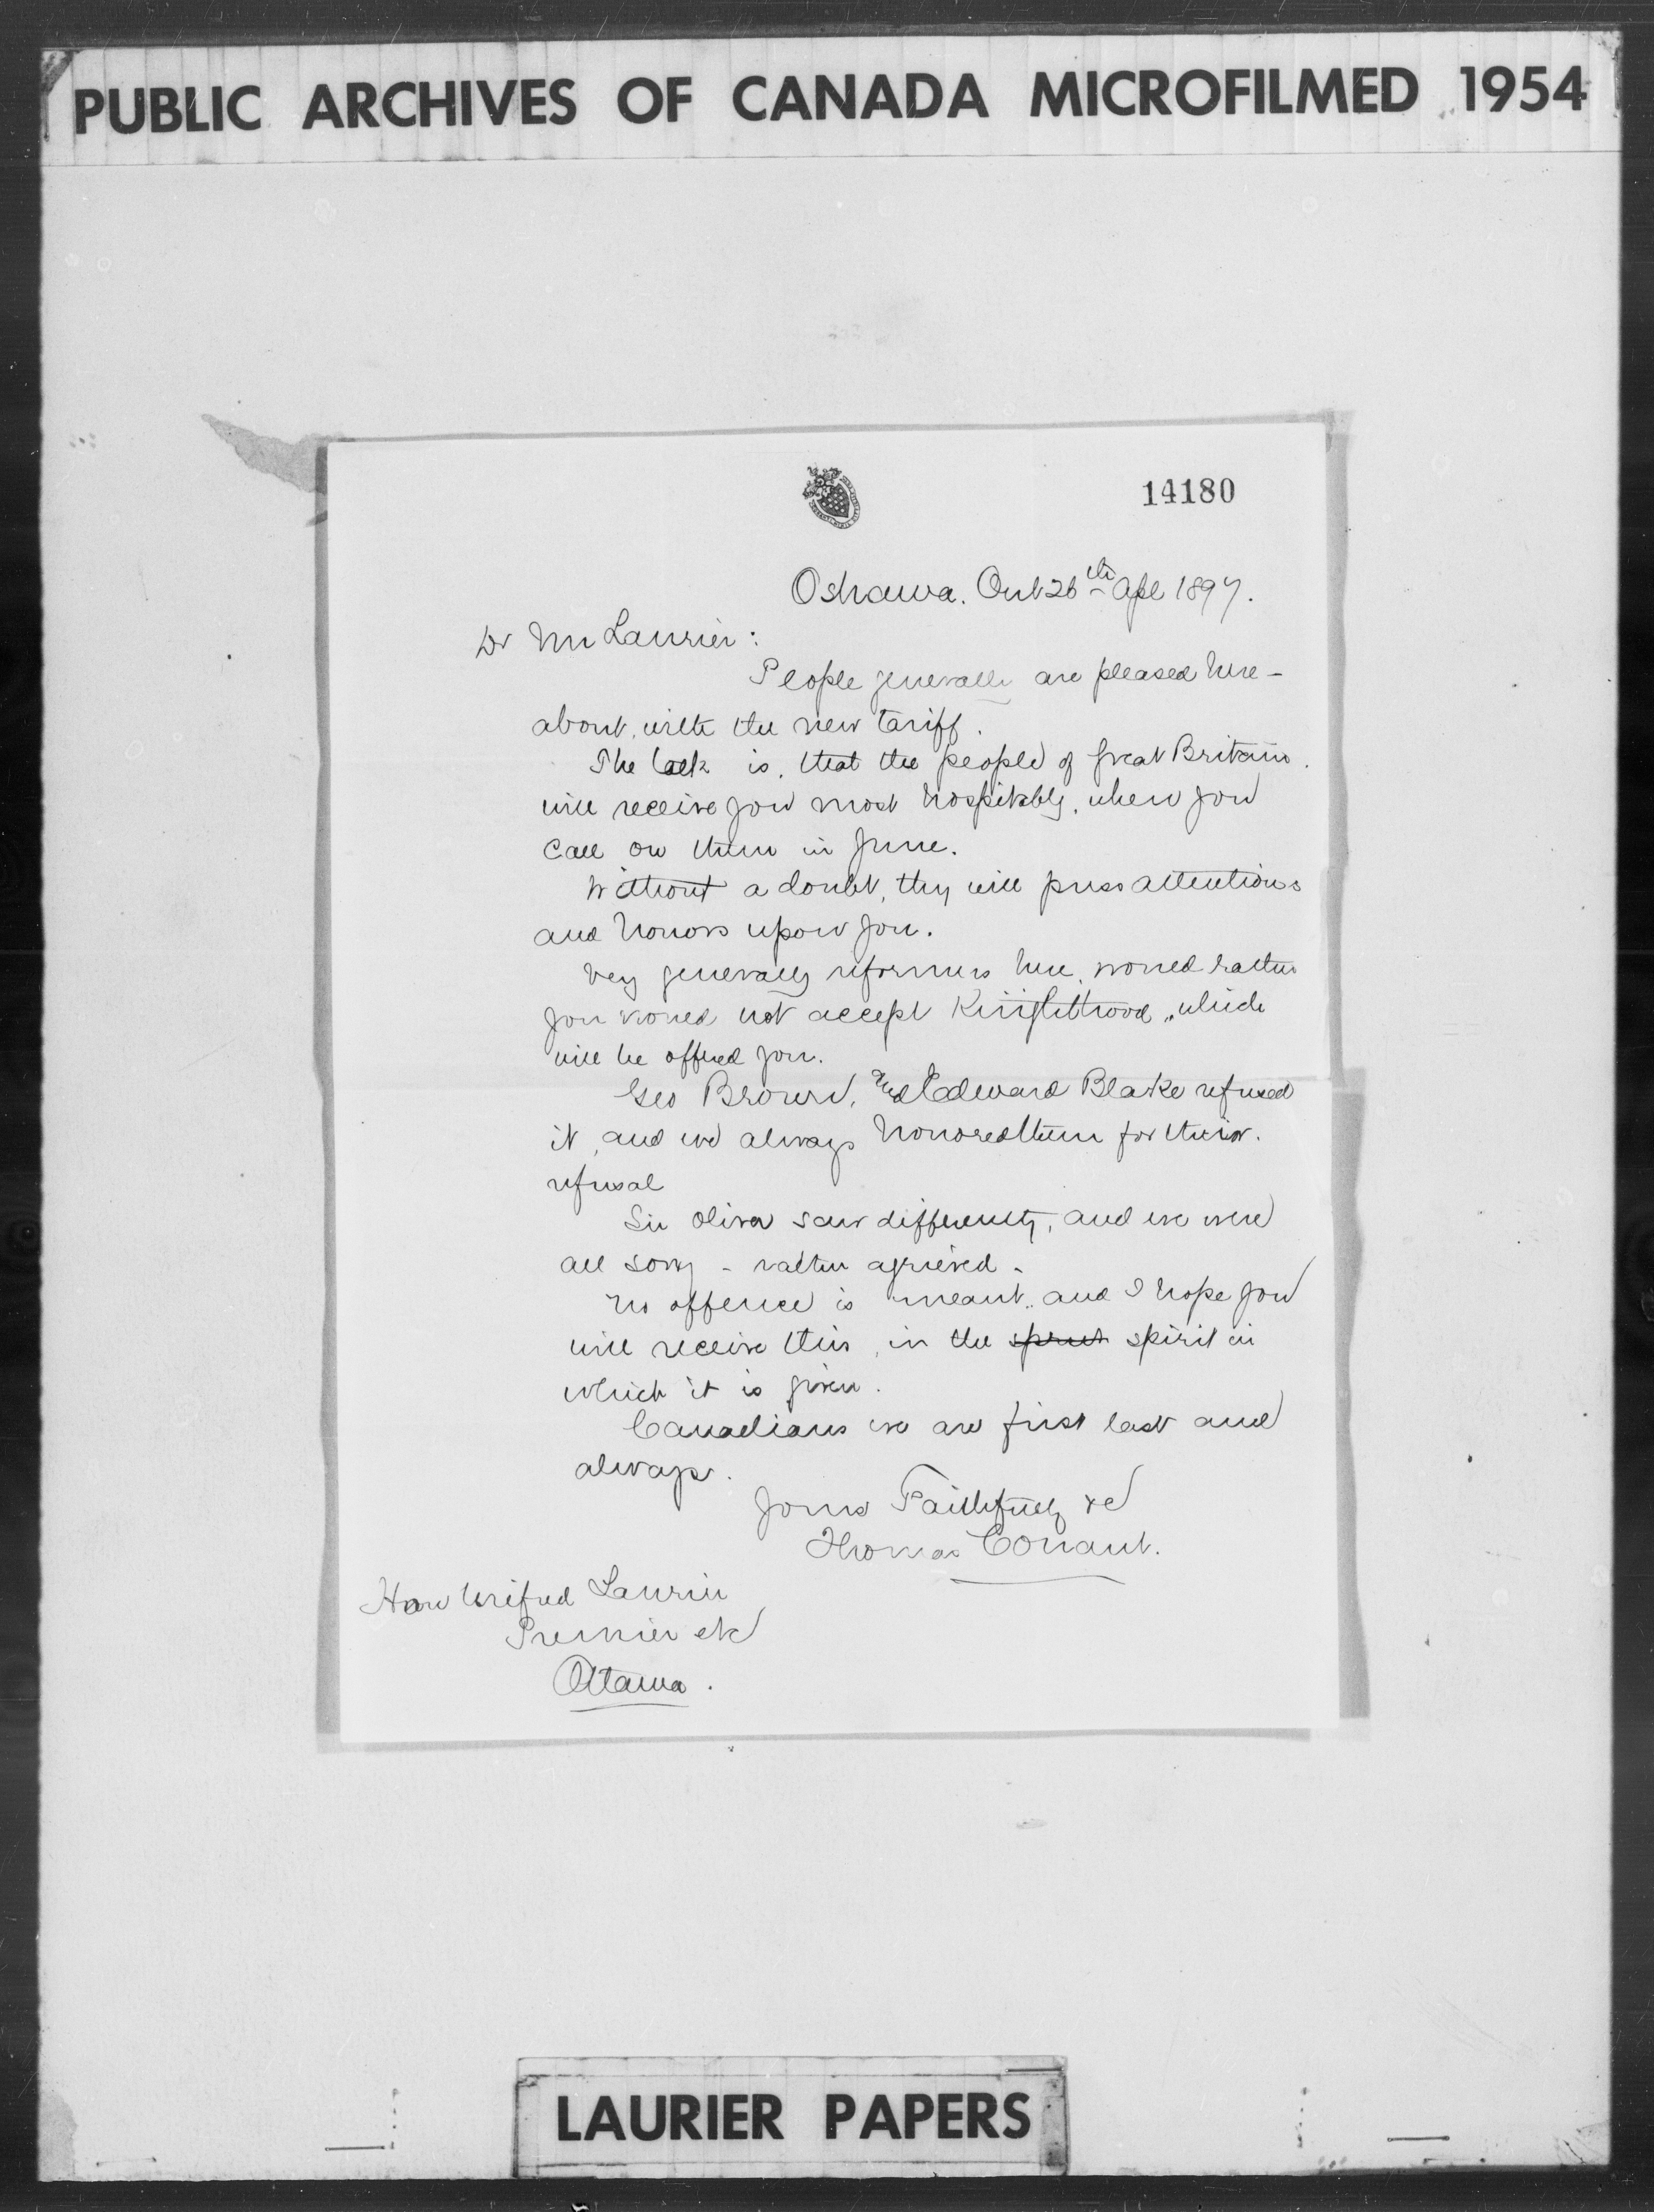 PUBLIC ARCHIVES OF CANADA MICROFILMED 1954
14180
Oshawa. Ont 26th Apl 1897.
Dr Mr Laurier:
People generally are pleased here-
about, with the new tariff.
The talk is, that the people of Great Britain.
will receive you most hospitably, when you
call on them in June.
Without a doubt, they will press attentions
and honors upon you.
Very generally reformers here, would rather
you would not accept Knighthood, which
will be offered you.
Geo Brown, and Edward Blake refused
it, and we always honored them for their.
refusal
Sir Oliver saw differently, and we were
all sorry - rather agrieved -
No offence is meant, and I hope you
will receive this, in the sprut spirit in
which it is given.
Canadians we are first last and
always.
Yours Faithfully &c
Thomas Conant.
Hon Wilfred Laurier
Premier etc
Ottawa.
LAURIER PAPERS